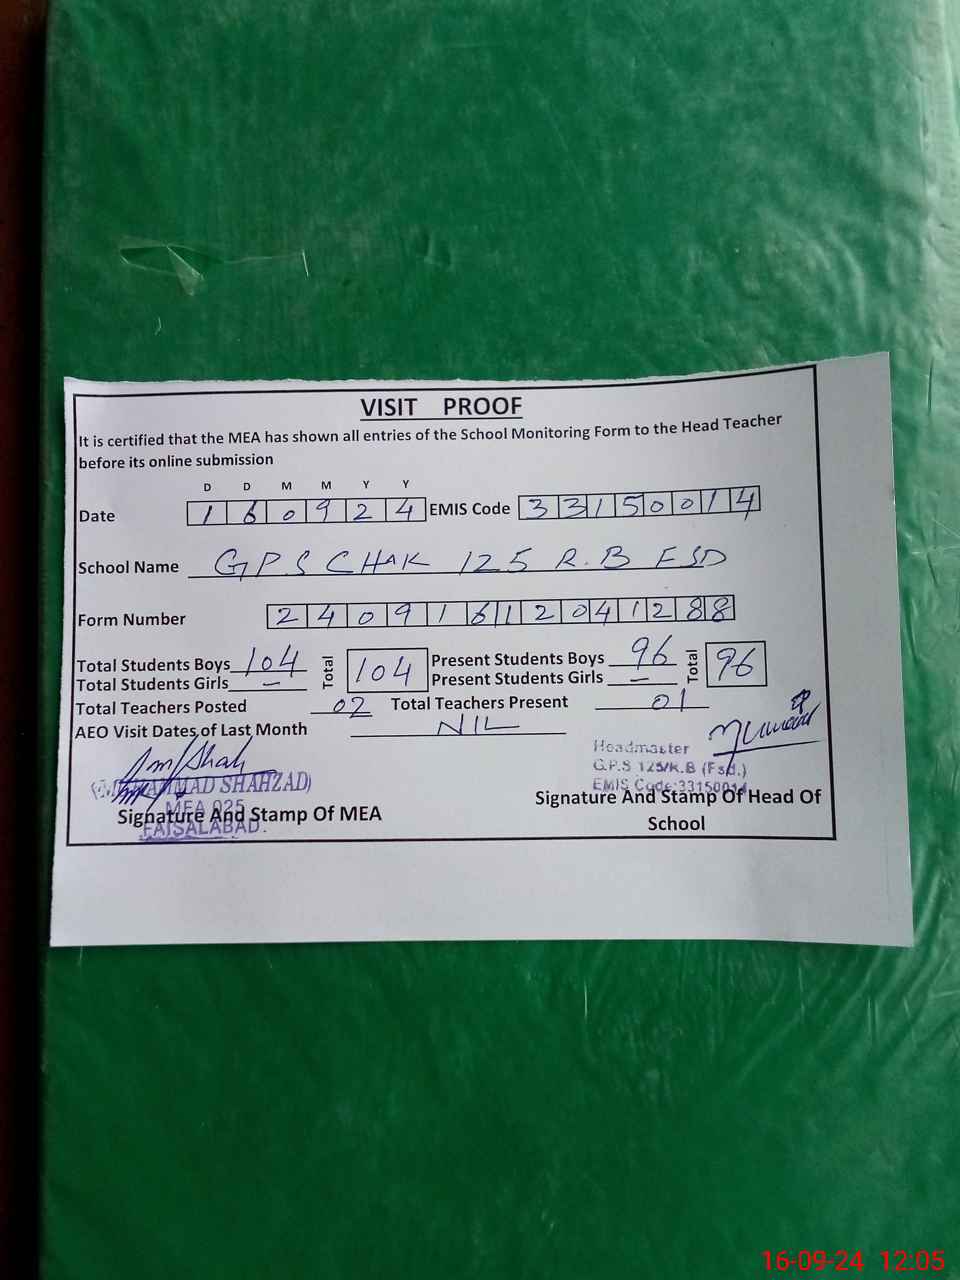 VISIT PROOF
It is certified that the MEA has shown all entries of the School Monitoring Form to the Head Teacher
before its online submission
D D M M Y Y
Date 1 6 0 9 2 4 EMIS Code 3 3 1 5 0 0 1 4
School Name GPS CHAK 125 R.B FSD
Form Number 2 4 0 9 1 6 1 2 0 4 1 2 8 8
Total Students Boys 104 Total 104 Present Students Boys 96 Total 96
Total Students Girls — Present Students Girls —
Total Teachers Posted 02 Total Teachers Present 01
AEO Visit Dates of Last Month NIL
Headmaster
G.P.S 125/R.B (Fsd.)
EMIS Code:33150014
SHAHZAD)
MEA 025
FAISALABAD.
Signature And Stamp Of MEA
Signature And Stamp Of Head Of
School
16-09-24 12:05